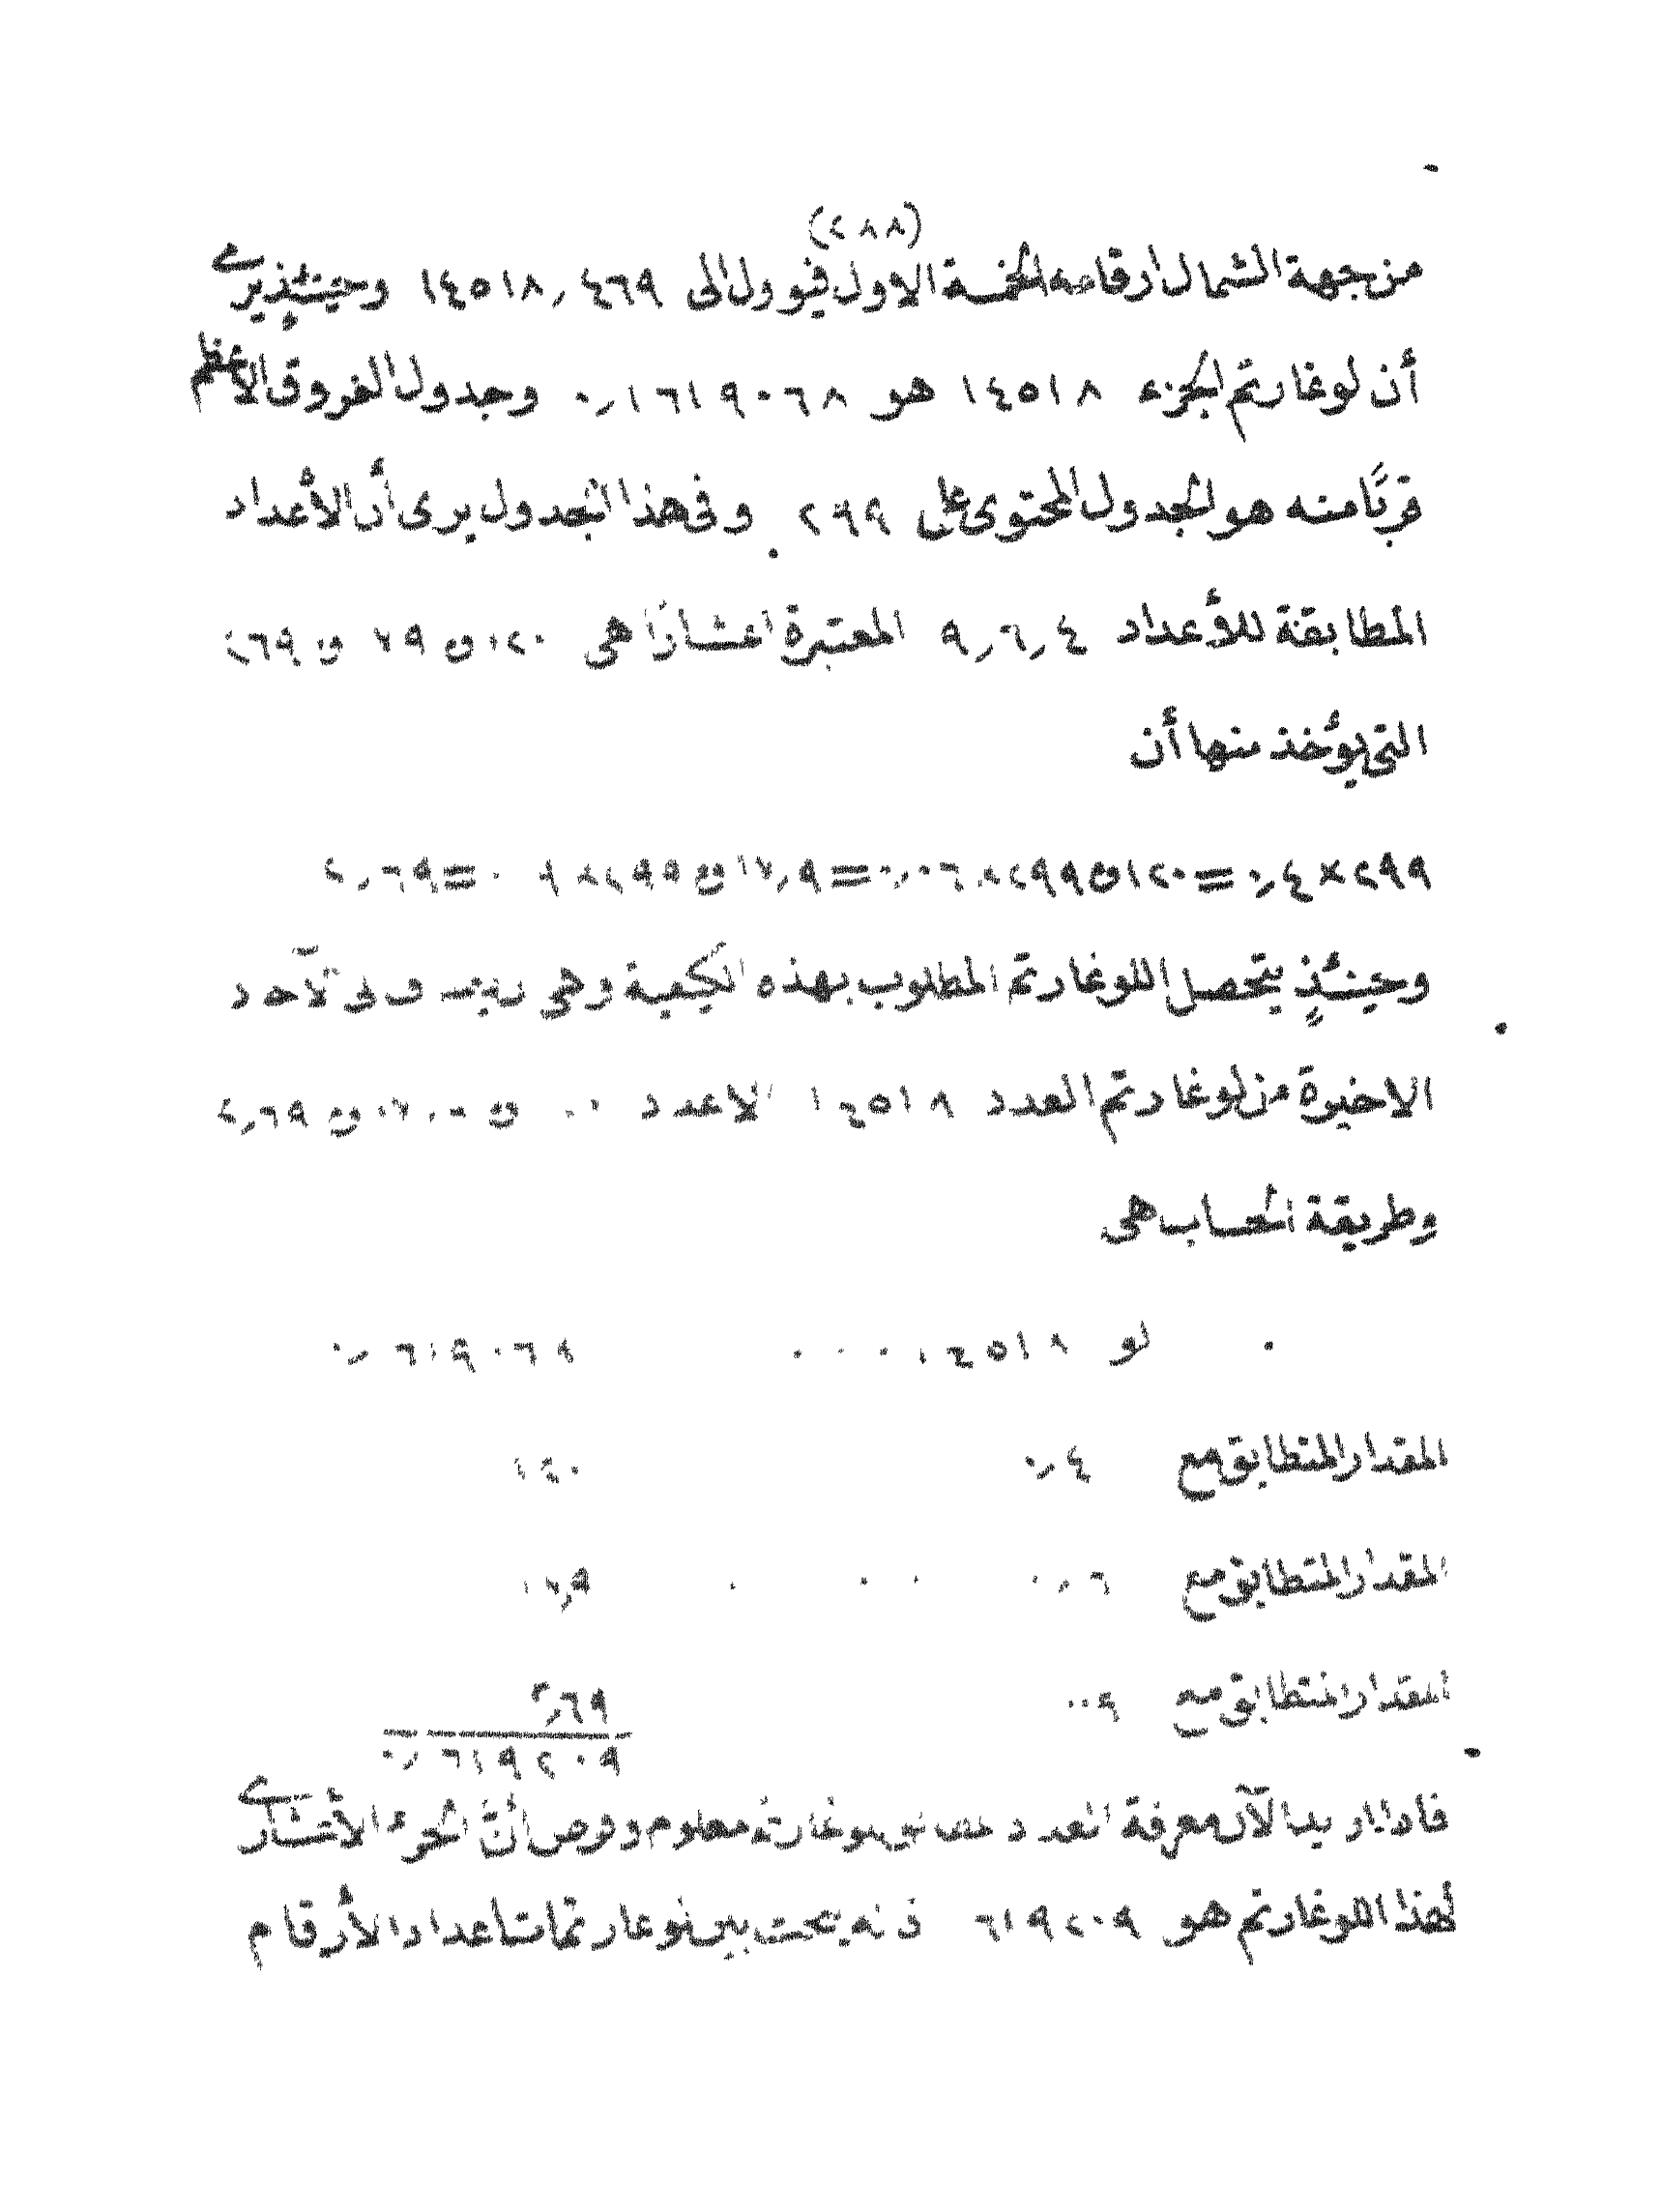 (٢٨٨)
من جهة الشمال ارقامه الخمسة الاول فيؤول الى ١٤٥١٨٫٤٦٩ وحينئذ يرى
أن لوغارتم الجزء ١٤٥١٨ هو ٠٫١٦١٩٠٦٨ وجدول الفروق الاعظم
قربًا منه هو الجدول المحتوى على ٢٩٩ وفى هذا الجدول يرى أن الأعداد
المطابقة للأعداد ٤٫٦٫٩ المعتبرة اعشارًا هى ١٢٠ و ١٧٩ و ٢٦٩
التى يؤخذ منها أن
٢٩٩×٠٫٤=١٢٠ و ٢٩٩×٠٫٠٦=١٧٫٩ و ٢٩٩× =٢٫٦٩
وحينئذٍ يتحصل اللوغارتم المطلوب بهذه الكيفية وهى
الاخيرة من لوغارتم العدد ١٤٥١٨ الاعداد و و ٢٫٦٩
وطريقة الحساب هى
لو ١٤٥١٨ .... ٠٫١٦١٩٠٦٨
المقدار المتطابق مع ٠٫٤ ١٢٠
المقدار المتطابق مع ٠٫٠٦ .... ١٧٫٩
المقدار المتطابق مع ٠٠٩ ٢٫٦٩
٠٫١٦١٩٢٠٩
فاذا اريد الآن معرفة العدد لوغارتمه معلوم وفرض أنّ الجزء الأعشارى
لهذا اللوغارتم هو ٦١٩٢٠٩ فانه يبحث بين لوغارتمات اعداد الأرقام